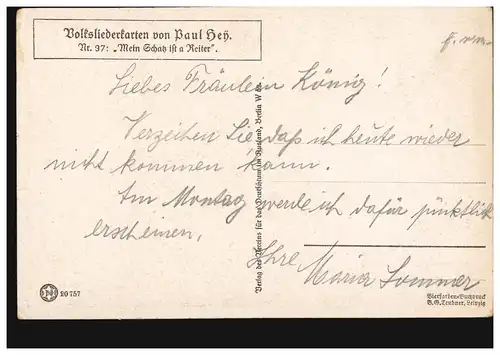 Volksliederkarten von Paul Hey.
Nr. 37: „Mein Schatz ist a Reiter".
Liebes Fräulein König!
Verzeihen Sie, daß ich heute wieder
nicht kommen kann.
Am Montag werde ich dafür pünktlich
erscheinen.
Ihre Maria Sommer
Verlag des Vereins für das Deutschtum im Ausland, Berlin W
20 757
Vierfarben-Buchdruck
B.G. Teubner, Leipzig